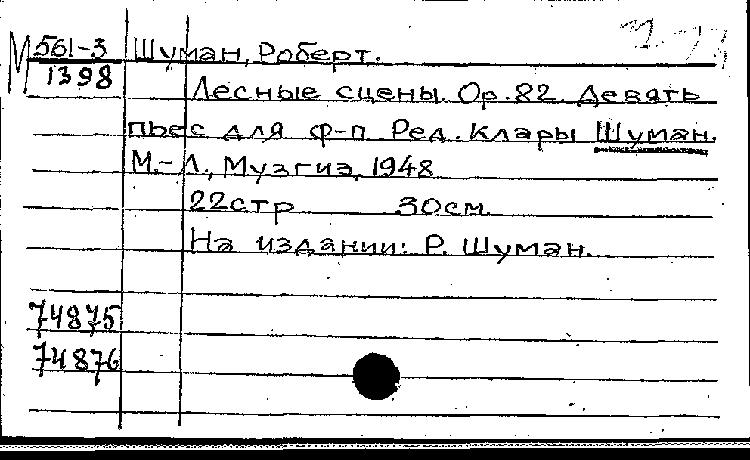 М 561-3 Шуман, Роберт.
1398
Лесные сцены. Ор. 82. Девять
пьес для ф-п. Ред. Клары Шуман.
М.-Л., Музгиз, 1948
22стр 30см
На издании: Р. Шуман.
74875
74876